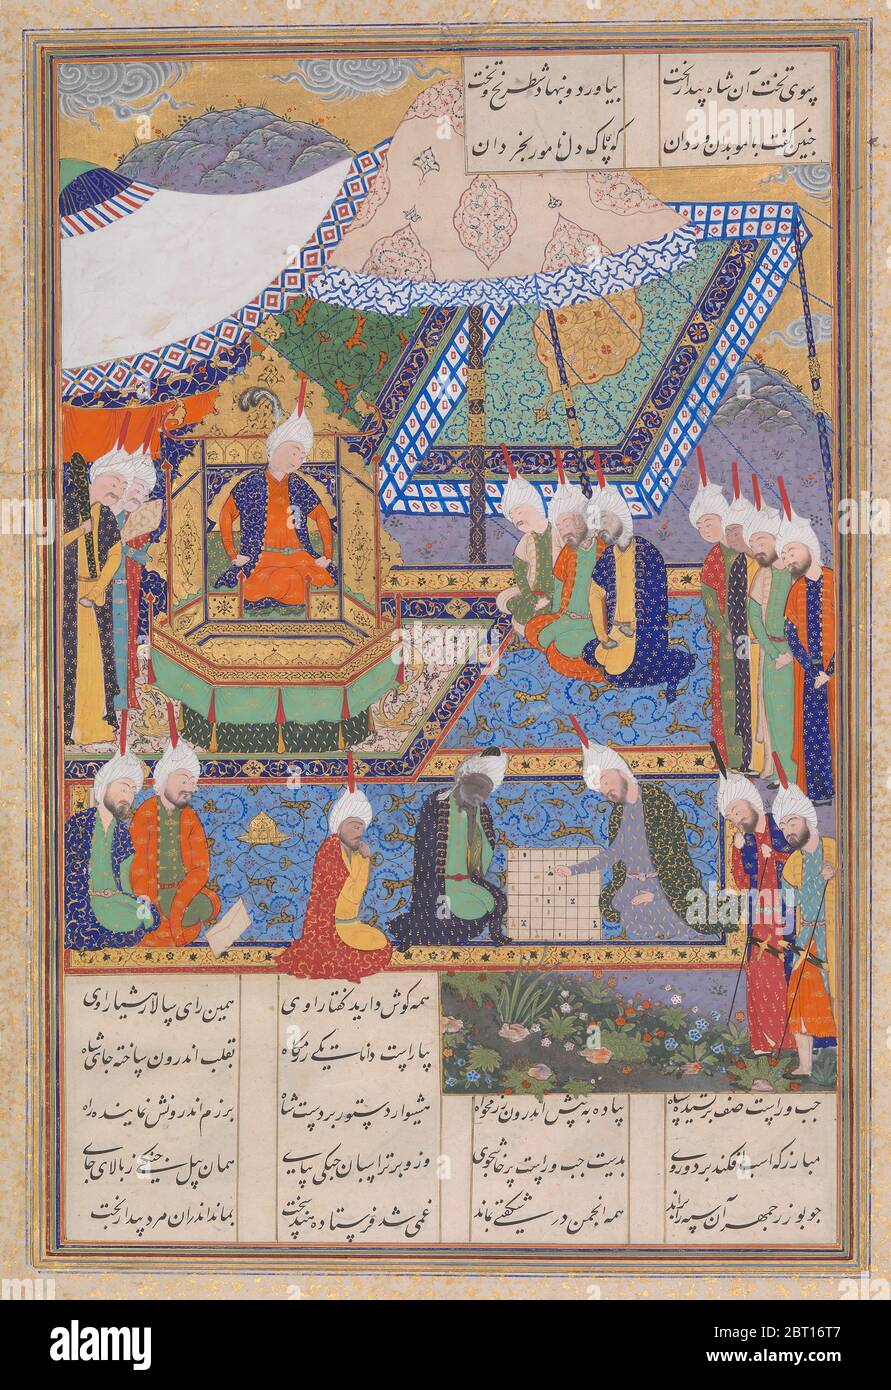 بسوی تخت آن شاه بیدار بخت بیاورد و بنهاد شطرنج و تخت
چنین گفت با موبدان و ردان که پاک دل نامور بخردان
همه گوش دارید گفتار اوی همین رای سالار هشیار اوی
بیاراست دانا یکی رزمگاه بقلب اندرون ساخته جای شاه
چپ و راست صف برکشیده سپاه پیاده به پیش اندرون رزمخواه هشیوار دستور بر دست شاه برزم اندرونش نماینده راه
مبارز که اسب افکند بر دو روی بدست چپ و راست پرخاشجوی وزو برتر اسبان جنگی بپای همان پیل جنگی ز بالای جای
چو بوزرجمهر آن سپه را براند همه انجمن در شگفتی بماند غمی شد فرستاده هند سخت بماند اندران مرد بیدار بخت
alamy
Image ID: 2BT16T7
www.alamy.com